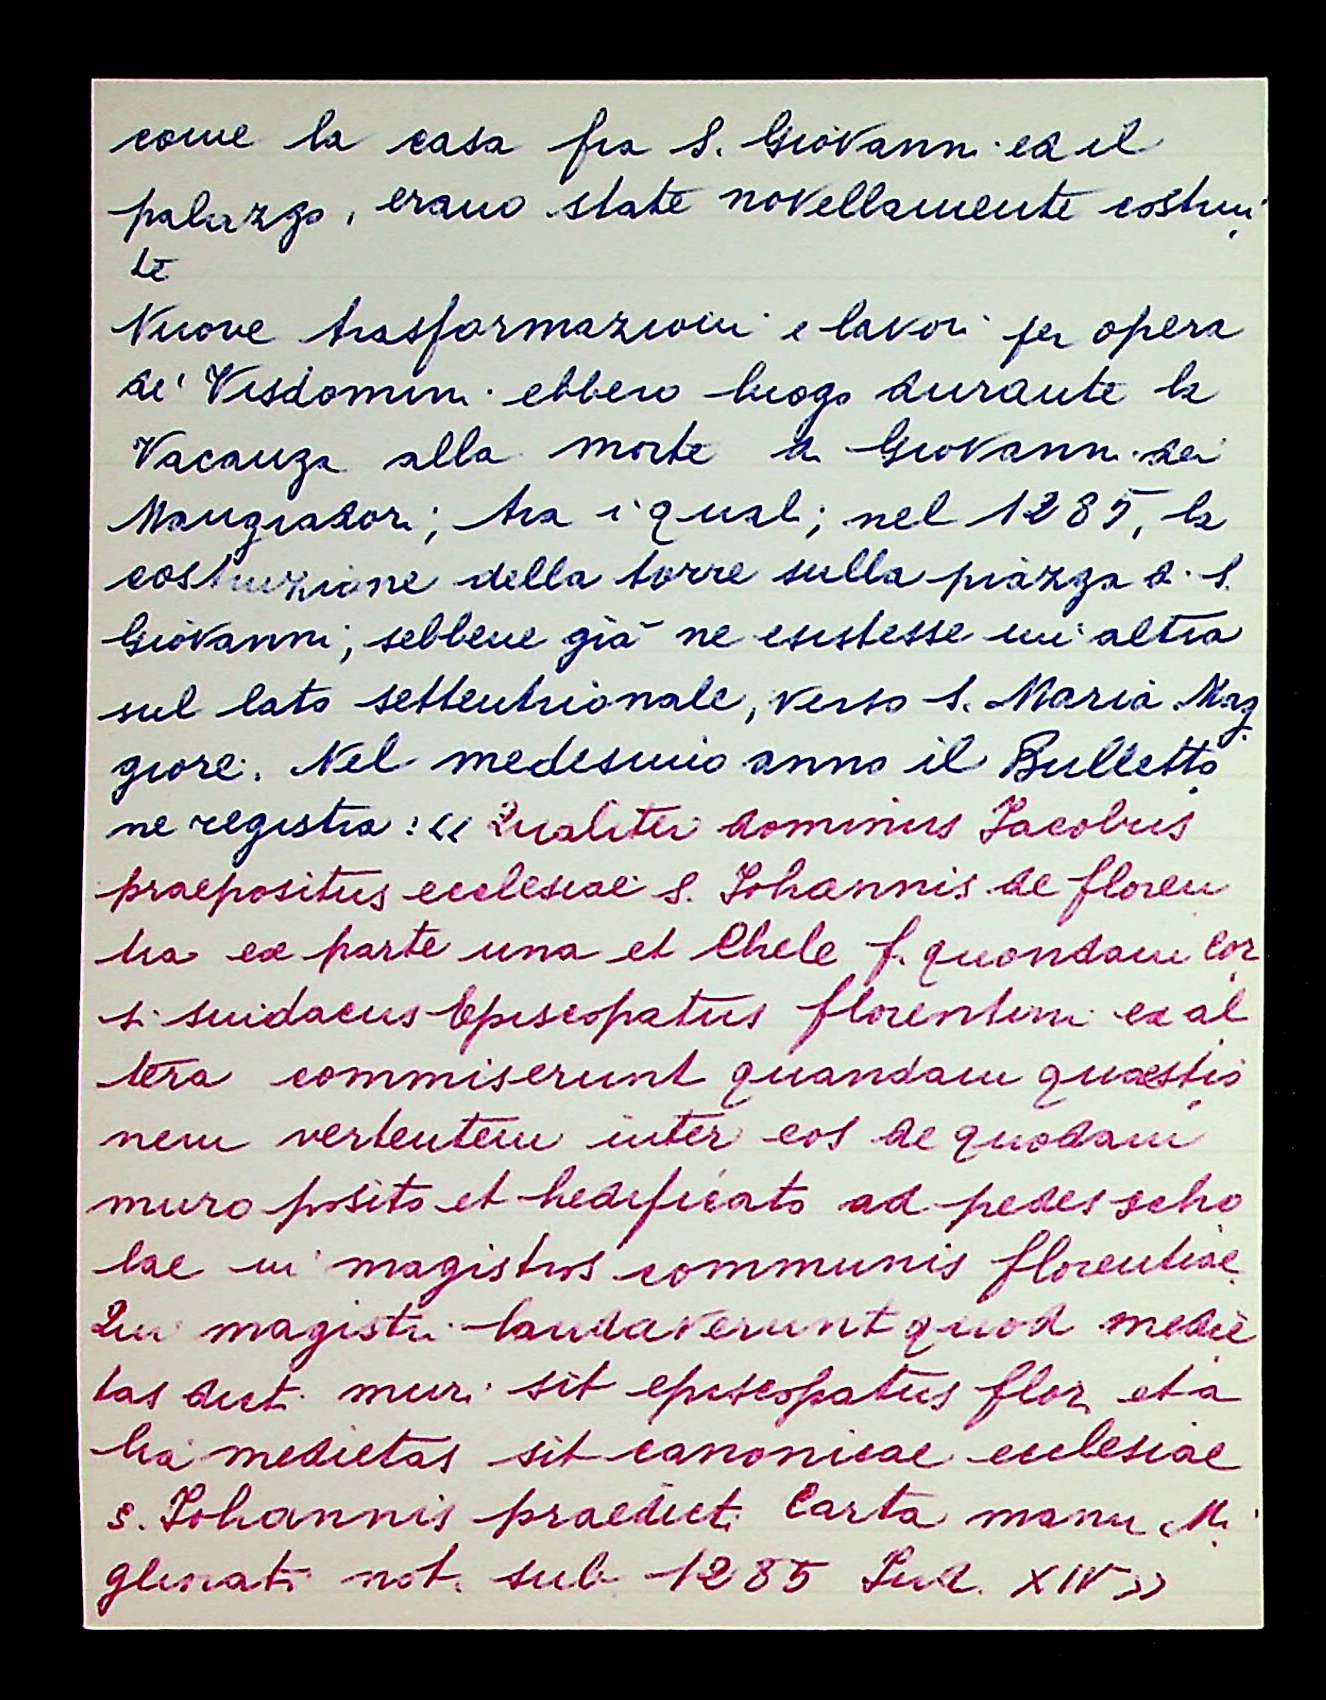 come la casa fra S. Giovanni ed il
palazzo, erano state novellamente costrui
te
Nuove trasformazioni e lavori per opera
de' Visdomini ebbero luogo durante la
Vacanza alla morte di Giovanni dei
Mangiadori; tra i quali; nel 1285, la
costruzione della torre sulla piazza di S.
Giovanni; sebbene già ne esistesse un'altra
sul lato settentrionale, verso S. Maria Mag
giore. Nel medesimo anno il Bulletto
ne registra: « Qualiter dominus Jacobus
praepositus ecclesiae S. Johannis de floren
tia ex parte una et Chele f. quondam Cor
si sindacus Episcopatus florentini ex al
tera commiserunt quandam quaestio
nem vertentem inter eos de quodam
muro posito et hedificato ad pedes scho
lae in magistros communis florentiae
Qui magistri laudaverunt quod medie
tas dicti muri sit episcopatus flor. et a
lia medietas sit canonicae ecclesiae
S. Johannis praedicti Carta manu Mi
gliorati not. sub 1285 Ind. XIV »